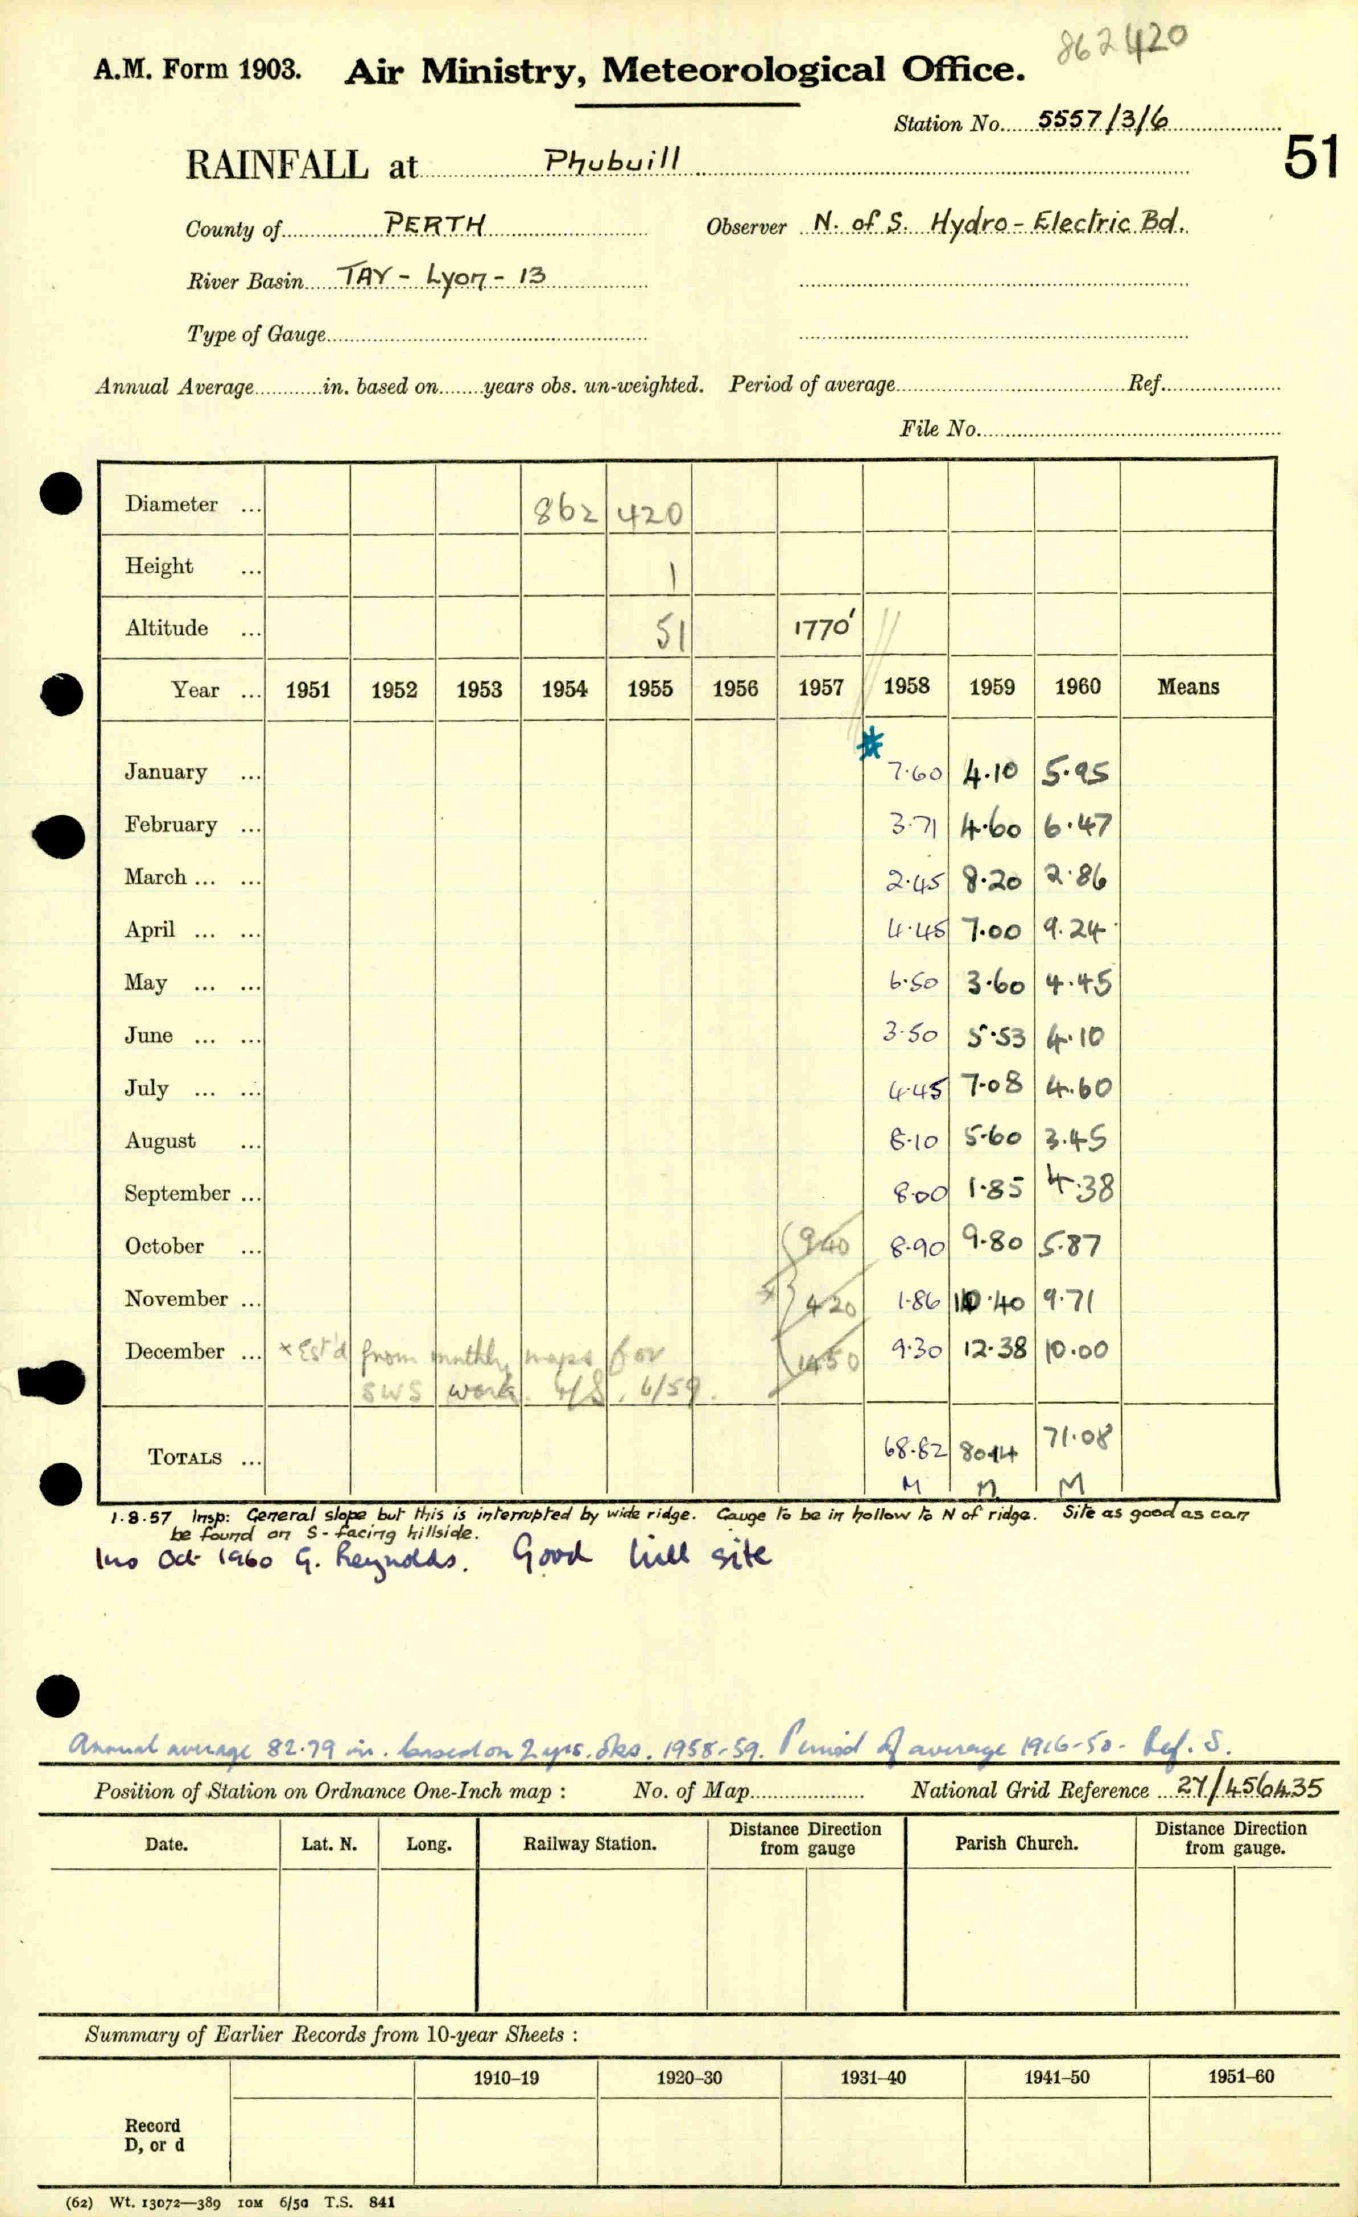 862420
A.M. Form 1903. Air Ministry, Meteorological Office.
Station No. 5557/3/6
51
RAINFALL at Phubuill
County of PERTH Observer N. of S. Hydro-Electric Bd.
River Basin TAY - Lyon - 13
Type of Gauge
Annual Average in. based on years obs. un-weighted. Period of average Ref.
File No.
Diameter ... 862 420
Height ... 1
Altitude ... 51 1770'
Year ... 1951 1952 1953 1954 1955 1956 1957 1958 1959 1960 Means
*
January ... 7.60 4.10 5.95
February ... 3.71 4.60 6.47
March ... ... 2.45 8.20 2.86
April ... ... 4.45 7.00 9.24
May ... ... 6.50 3.60 4.45
June ... ... 3.50 5.53 4.10
July ... ... 4.45 7.08 4.60
August ... 8.10 5.60 3.45
September ... 8.00 1.85 4.38
October ... 940 8.90 9.80 5.87
November ... 420 1.86 10.40 9.71
December ... x Est'd from monthly maps for 1450 9.30 12.38 10.00
SWS work. 6/59.
TOTALS ... 68.82 80.14 71.08
M M M
1.8.57 Insp: General slope but this is interrupted by wide ridge. Gauge to be in hollow to N of ridge. Site as good as can
be found on S-facing hillside.
Ins Oct 1960 G. Reynolds. Good hill site
Annual average 82.79 in. based on 2 yrs. obs. 1958-59. Period of average 1916-50. Ref. S.
Position of Station on Ordnance One-Inch map : No. of Map National Grid Reference 27/456435
Date. Lat. N. Long. Railway Station. Distance Direction from gauge Parish Church. Distance Direction from gauge.
Summary of Earlier Records from 10-year Sheets :
1910–19 1920–30 1931–40 1941–50 1951–60
Record
D, or d
(62) Wt. 13072—389 10M 6/50 T.S. 841